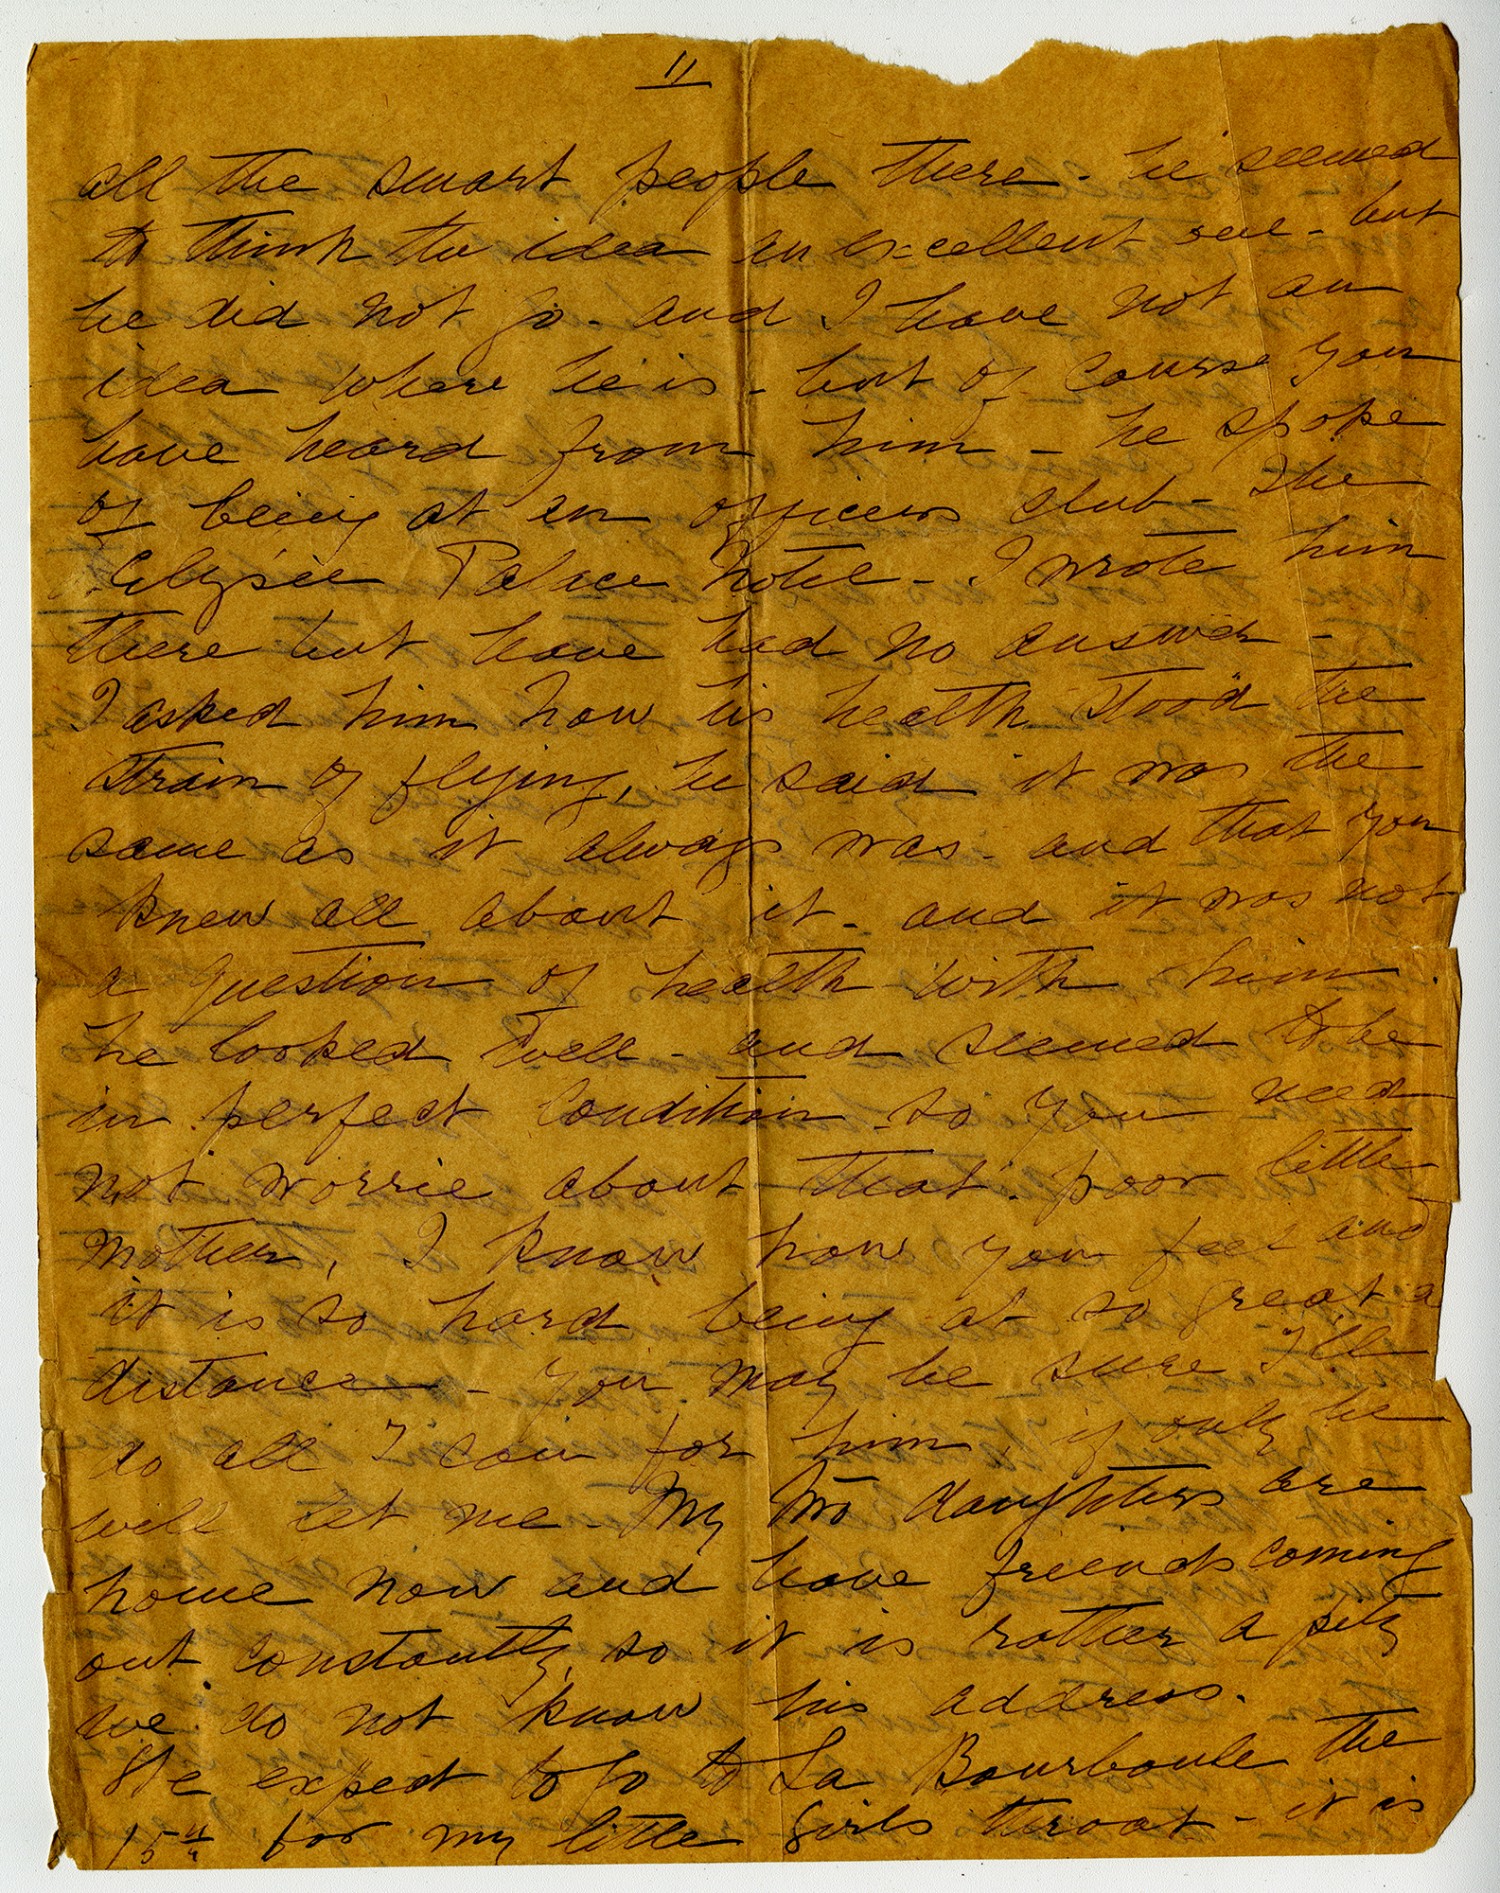 11
all the smart people there - he seemed
to think the idea an excellent one - but
he did not go - and I have not an
idea where he is - but of course you
have heard from him - he spoke
of being at an officers club - The
Elysée Palace Hotel - I wrote him
there but have had no answer -
I asked him how his health stood the
strain of flying, he said it was the
same as it always was - and that you
knew all about it - and it was not
a question of health with him.
he looked well - and seemed to be
in perfect condition - so you need
not worrie about that - poor little
Mother, I know how you feel and
it is so hard being at so great a
distance - you may be sure I'll
do all I can for him, if only he
will let me - My two daughters are
home now and have friends coming
out constantly, so it is rather a pity
we do not know his address.
We expect to go to La Bourboule the
15th for my little girls throat - it is